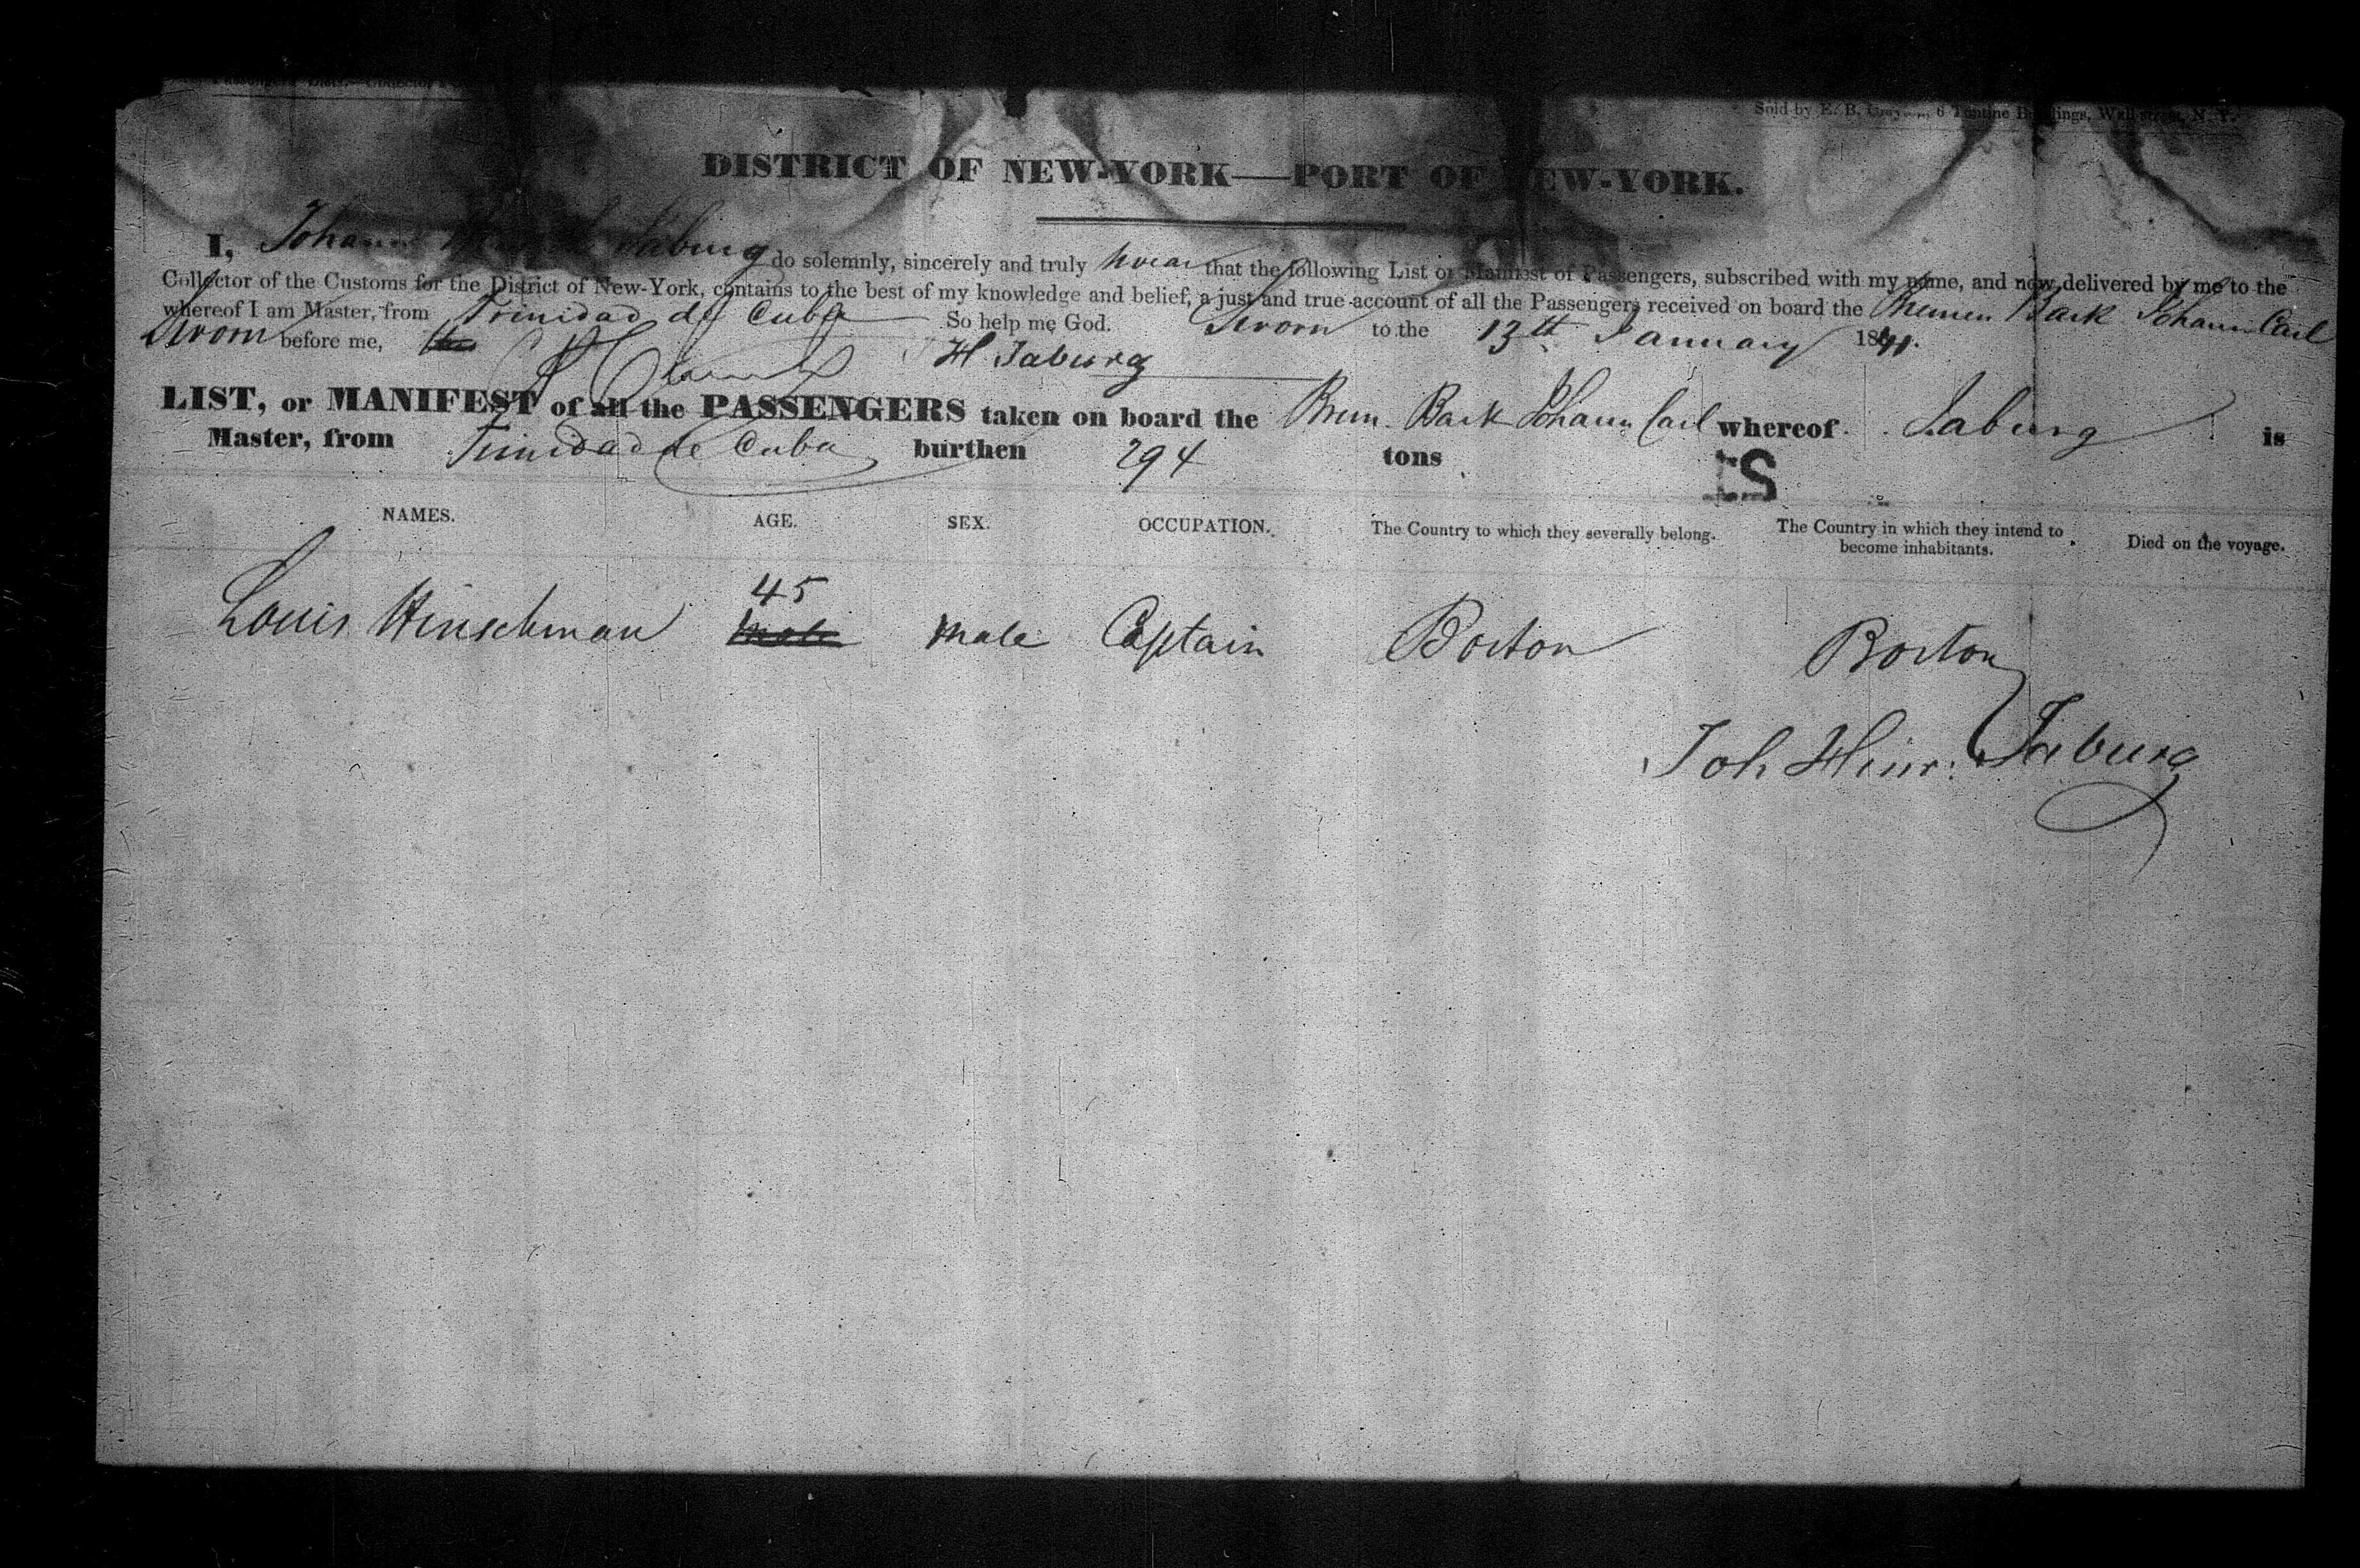 Sold by E. B. 6 Tontine Buildings, Wall-street, N. Y.
DISTRICT OF NEW-YORK—PORT OF NEW-YORK.
I, Johann Jaburg do solemnly, sincerely and truly swear that the following List or Manifest of Passengers, subscribed with my name, and now delivered by me to the
Collector of the Customs for the District of New-York, contains to the best of my knowledge and belief, a just and true account of all the Passengers received on board the Bremen Bark Johann Carl
whereof I am Master, from Trinidad de Cuba So help me God. Sworn to the 13th January 1841.
Sworn before me, H Jaburg
LIST, or MANIFEST of all the PASSENGERS taken on board the Brem. Bark Johann Carl whereof Jaburg is
Master, from Trinidad de Cuba burthen 294 tons
NAMES. AGE. SEX. OCCUPATION. The Country to which they severally belong. The Country in which they intend to become inhabitants. Died on the voyage.
Louis Hinschman 45 male Captain Boston Boston
Joh Hinr: Jaburg